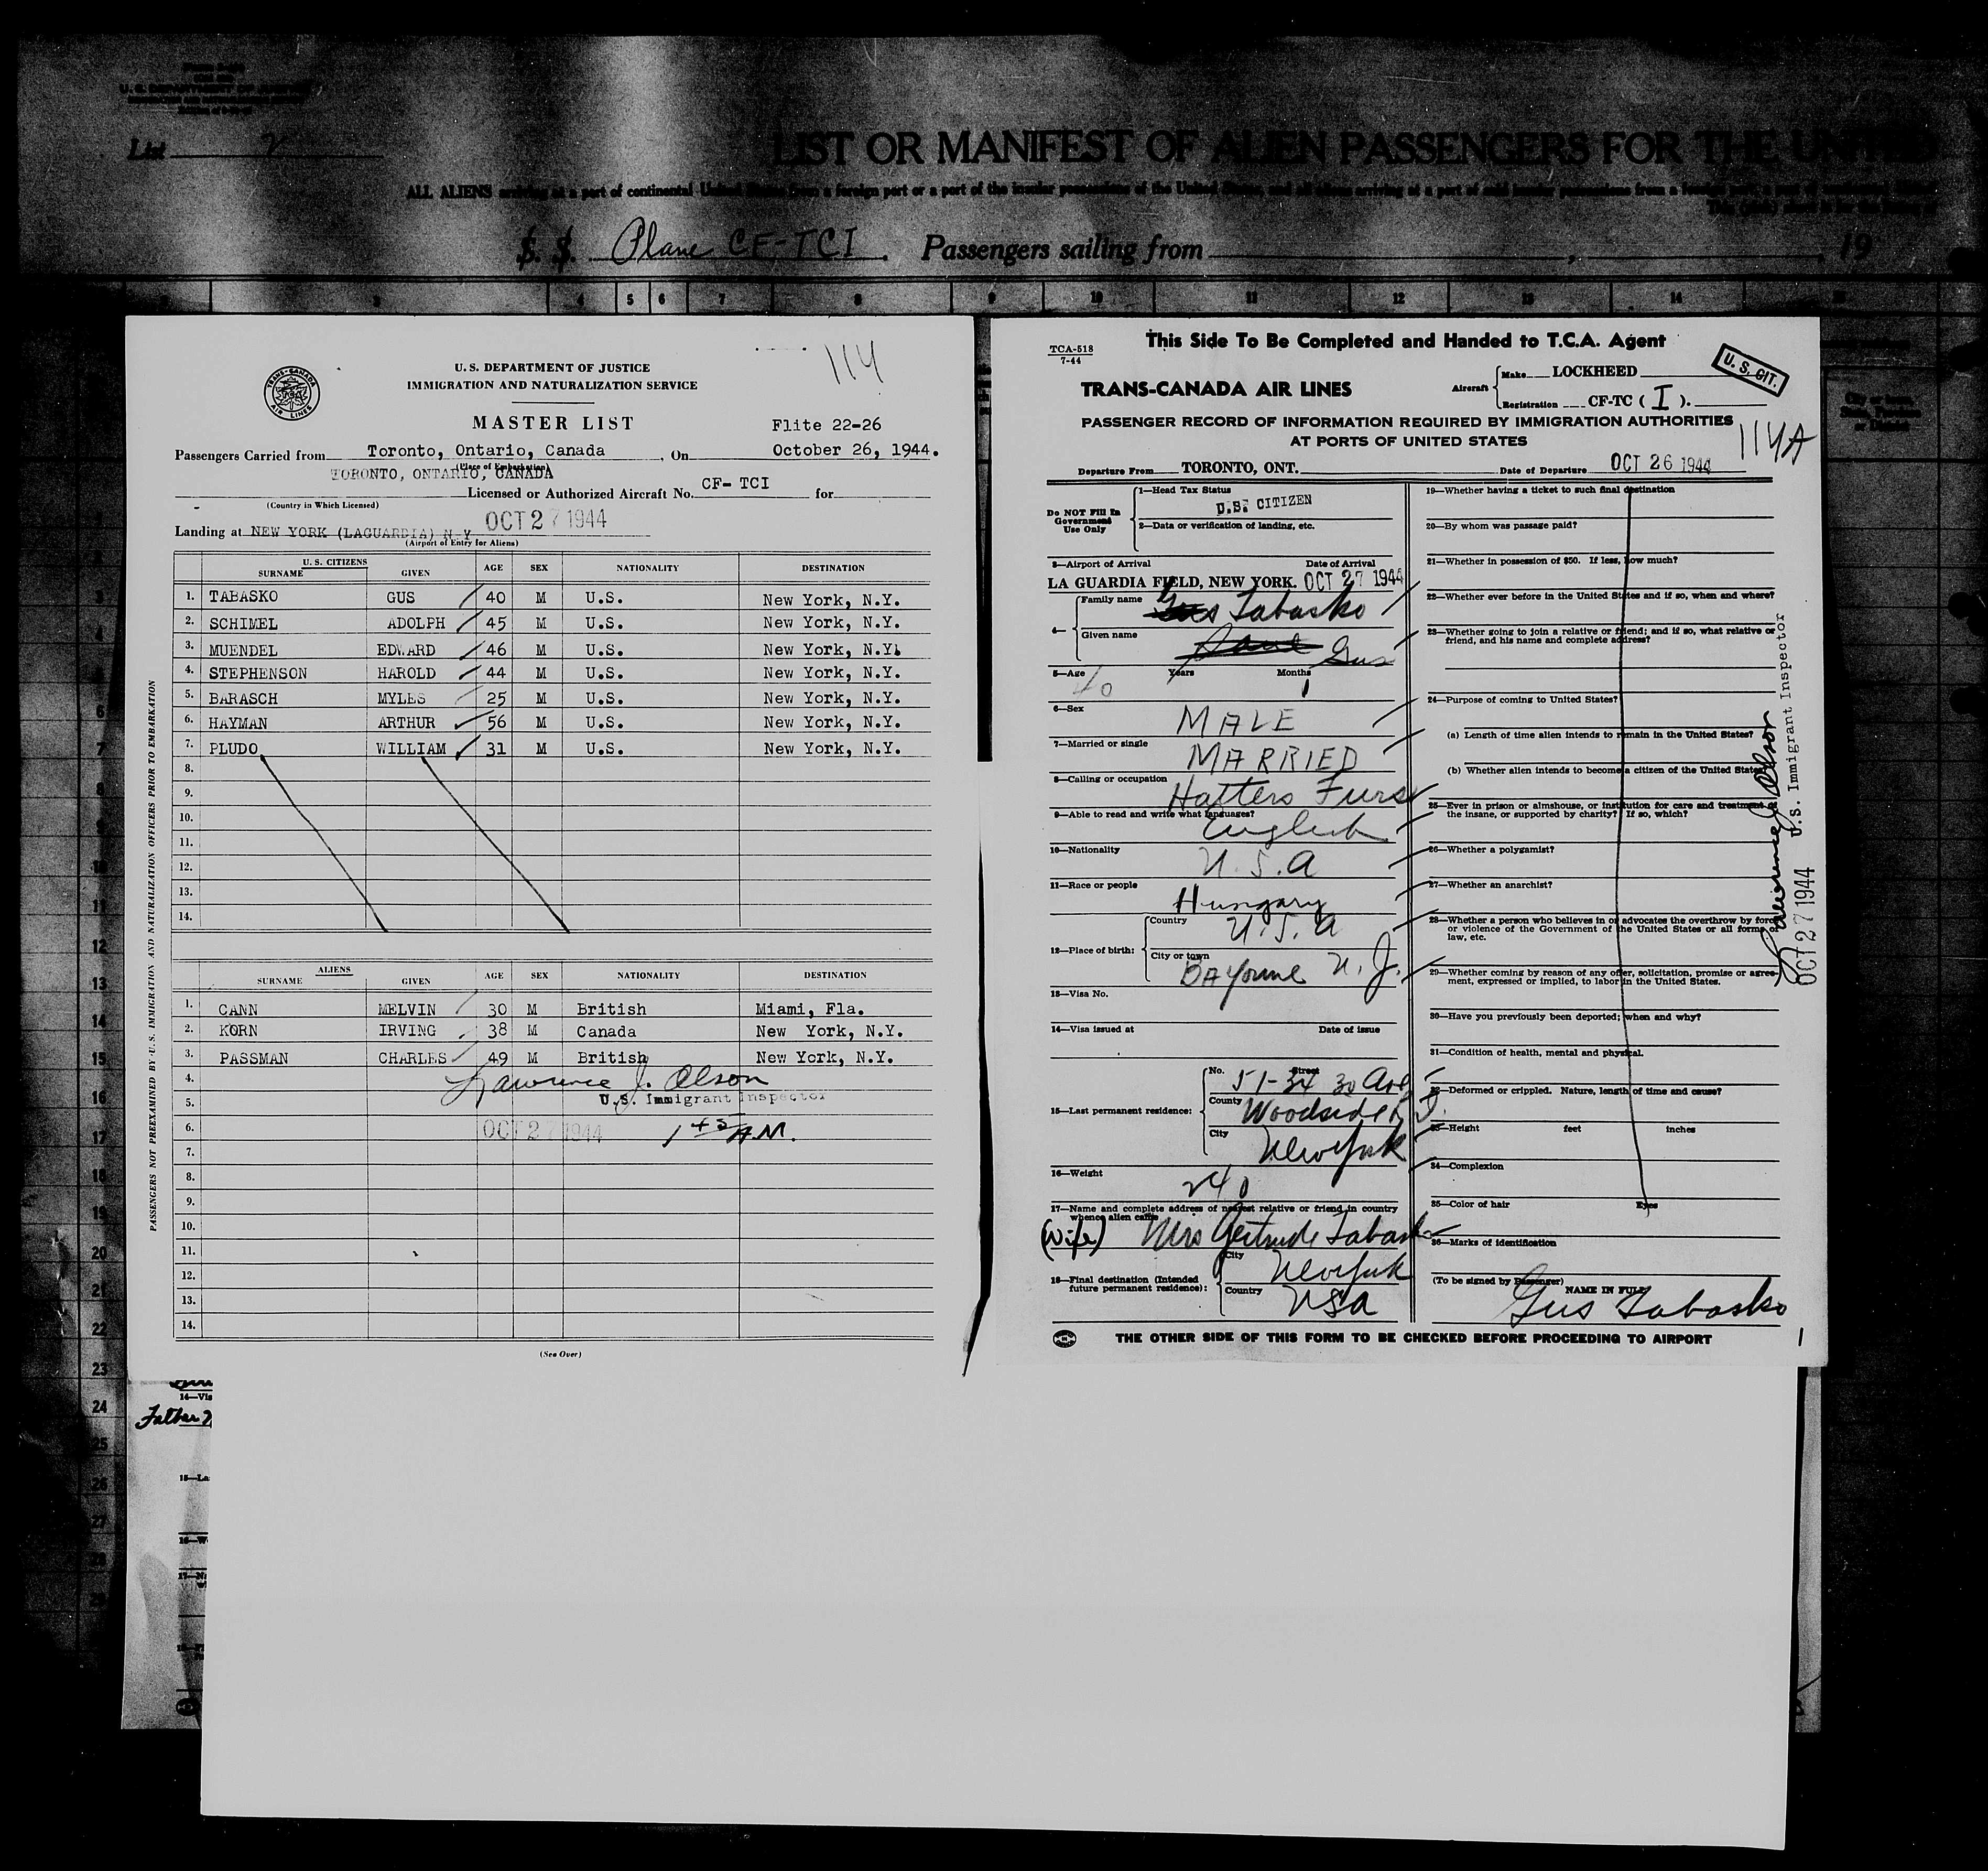 List 2
LIST OR MANIFEST OF ALIEN PASSENGERS FOR THE UNITED
ALL ALIENS arriving at a port of continental United States from a foreign port or a port of the insular possessions of the United States, and all aliens arriving at a port of said insular possessions from a foreign port
S. S. Plane CF-TCI. Passengers sailing from , 19
3 4 5 6 7 8 9 10 11 12 13 14
114
TRANS-CANADA AIR LINES
U. S. DEPARTMENT OF JUSTICE
IMMIGRATION AND NATURALIZATION SERVICE
MASTER LIST
Flite 22-26
Passengers Carried from Toronto, Ontario, Canada , On October 26, 1944.
(Place of Embarkation)
TORONTO, ONTARIO, CANADA
Licensed or Authorized Aircraft No. CF- TCI for
(Country in Which Licensed)
OCT 27 1944
Landing at NEW YORK (LAGUARDIA) N.Y
(Airport of Entry for Aliens)
U. S. CITIZENS
SURNAME GIVEN AGE SEX NATIONALITY DESTINATION
1. TABASKO GUS 40 M U.S. New York, N.Y.
2. SCHIMEL ADOLPH 45 M U.S. New York, N.Y.
3. MUENDEL EDWARD 46 M U.S. New York, N.Y.
4. STEPHENSON HAROLD 44 M U.S. New York, N.Y.
5. BARASCH MYLES 25 M U.S. New York, N.Y.
6. HAYMAN ARTHUR 56 M U.S. New York, N.Y.
7. PLUDO WILLIAM 31 M U.S. New York, N.Y.
8.
9.
10.
11.
12.
13.
14.
ALIENS
SURNAME GIVEN AGE SEX NATIONALITY DESTINATION
1. CANN MELVIN 30 M British Miami, Fla.
2. KORN IRVING 38 M Canada New York, N.Y.
3. PASSMAN CHARLES 49 M British New York, N.Y.
4. Lawrence J. Olson
5. U.S. Immigrant Inspector
6. OCT 27 1944 1 45 A.M.
7.
8.
9.
10.
11.
12.
13.
14.
(See Over)
PASSENGERS NOT PREEXAMINED BY U. S. IMMIGRATION AND NATURALIZATION OFFICERS PRIOR TO EMBARKATION
This Side To Be Completed and Handed to T.C.A. Agent
TCA-518
7-44
U. S. CIT.
TRANS-CANADA AIR LINES
Aircraft Make LOCKHEED
Registration CF-TC ( I ).
PASSENGER RECORD OF INFORMATION REQUIRED BY IMMIGRATION AUTHORITIES
AT PORTS OF UNITED STATES
114A
Departure From TORONTO, ONT. Date of Departure OCT 26 1944
Do NOT Fill In
Government
Use Only
1—Head Tax Status
U.S. CITIZEN
2—Data or verification of landing, etc.
3—Airport of Arrival Date of Arrival
LA GUARDIA FIELD, NEW YORK. OCT 27 1944
4— Family name Tabasko
Given name Gus
5—Age 40 Years Months 1
6—Sex MALE
7—Married or single MARRIED
8—Calling or occupation Hatters Furs
9—Able to read and write what languages? English
10—Nationality U.S.A
11—Race or people Hungary
12—Place of birth: Country U.S.A
City or town BAyonne N.J.
13—Visa No.
14—Visa issued at Date of issue
15—Last permanent residence: No. Street 51-34 30 Ave
County Woodside L.I.
City New York
16—Weight 240
17—Name and complete address of nearest relative or friend in country
whence alien came
(Wife) Mrs Gertrude Tabasko
18—Final destination (Intended
future permanent residence): City New York
Country USA
19—Whether having a ticket to such final destination
20—By whom was passage paid?
21—Whether in possession of $50. If less, how much?
22—Whether ever before in the United States and if so, when and where?
23—Whether going to join a relative or friend; and if so, what relative or
friend, and his name and complete address?
24—Purpose of coming to United States?
(a) Length of time alien intends to remain in the United States?
(b) Whether alien intends to become a citizen of the United States
25—Ever in prison or almshouse, or institution for care and treatment of
the insane, or supported by charity? If so, which?
26—Whether a polygamist?
27—Whether an anarchist?
28—Whether a person who believes in or advocates the overthrow by force
or violence of the Government of the United States or all forms of
law, etc.
29—Whether coming by reason of any offer, solicitation, promise or agree-
ment, expressed or implied, to labor in the United States.
30—Have you previously been deported; when and why?
31—Condition of health, mental and physical.
32—Deformed or crippled. Nature, length of time and cause?
33—Height feet inches
34—Complexion
35—Color of hair Eyes
36—Marks of identification
(To be signed by Passenger)
NAME IN FULL
Gus Tabasko
THE OTHER SIDE OF THIS FORM TO BE CHECKED BEFORE PROCEEDING TO AIRPORT
Lawrence J. Olson
U.S. Immigrant Inspector
OCT 27 1944
14—Vis
Father
15—La
16—W
17—N